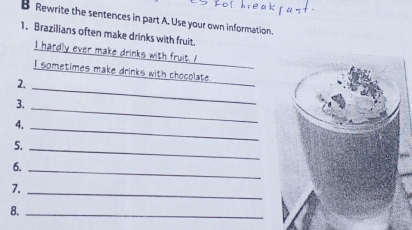 for breakfast.
B Rewrite the sentences in part A. Use your own information.
1. Brazilians often make drinks with fruit.
I hardly ever make drinks with fruit. /
I sometimes make drinks with chocolate.
2.
3.
4.
5.
6.
7.
8.